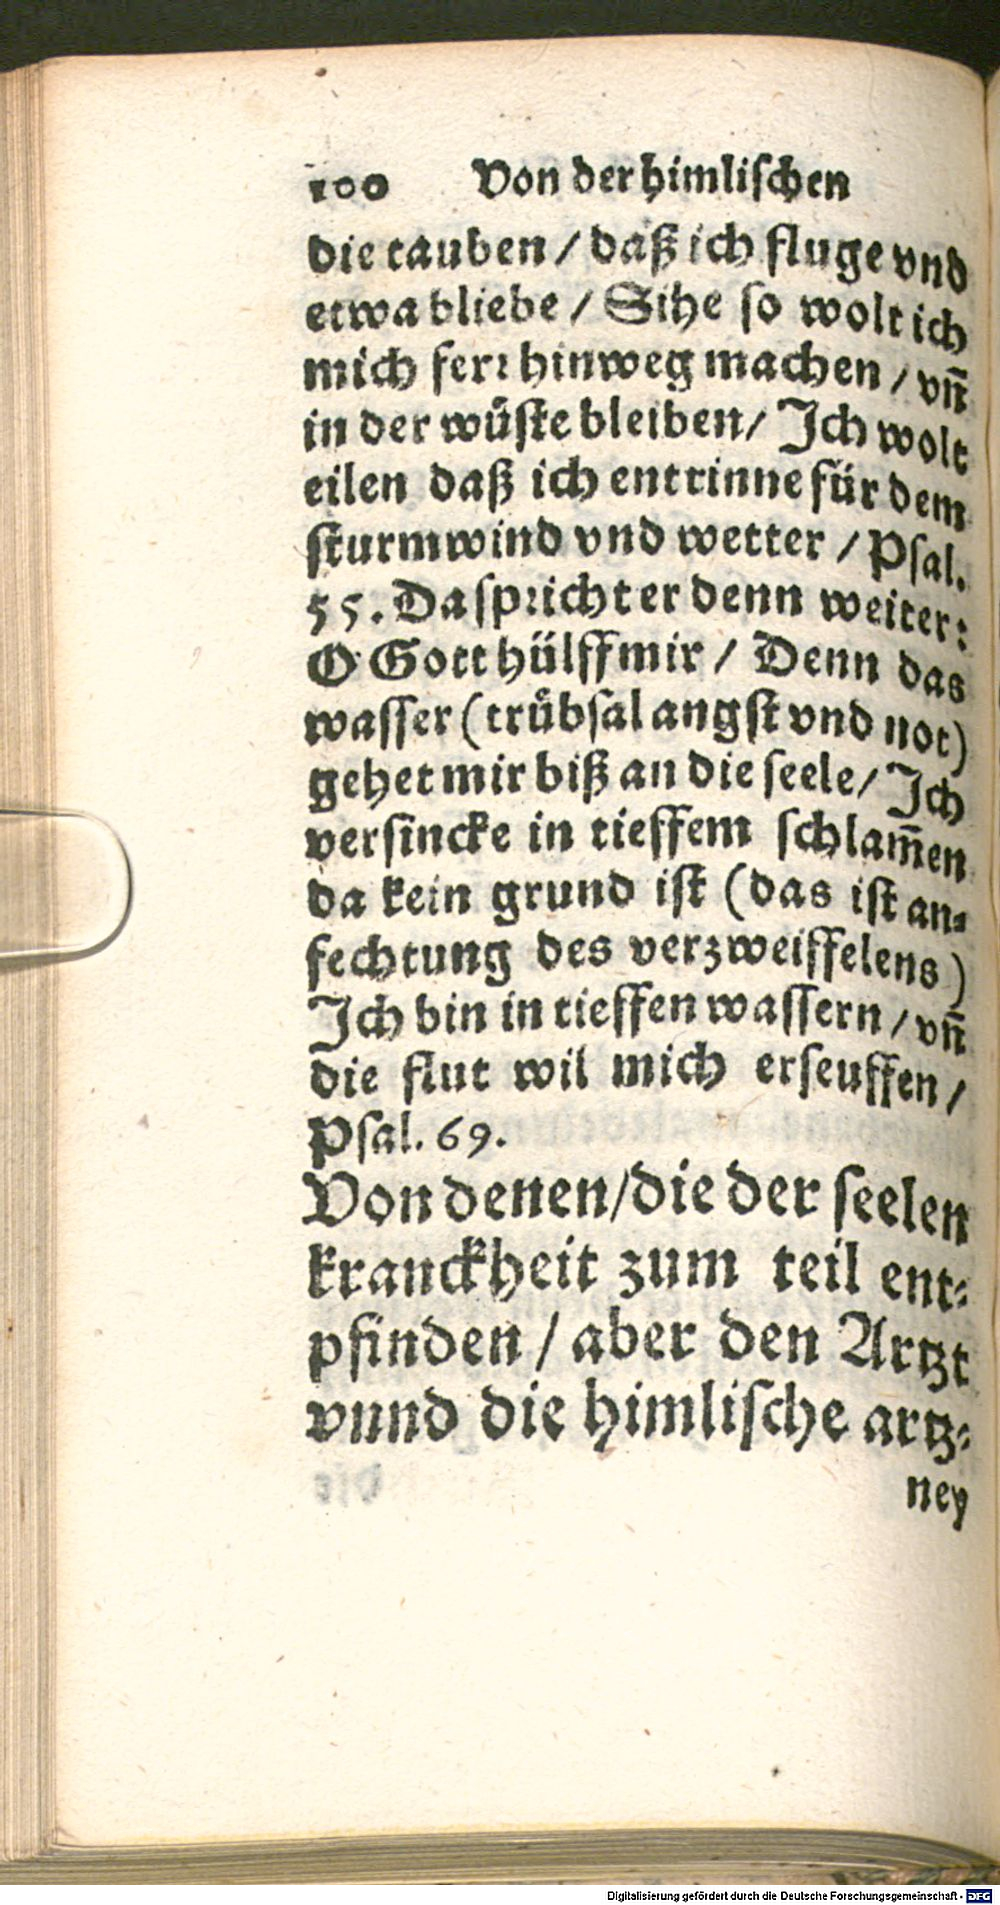 100 Von der himlischen
die tauben / daß ich fluge vnd
etwa bliebe / Sihe so wolt ich
mich ferꝛ hinweg machen / vñ
in der wuͤste bleiben / Ich wolt
eilen daß ich entrinne für dem
sturmwind vnd wetter / Psal.
55. Da spꝛicht er denn weiter:
O Gott hülff mir / Denn das
wasser (truͤbsal angst vnd not)
gehet mir biß an die seele / Ich
versincke in tieffem schlam̃en
da kein grund ist (das ist an⸗
fechtung des verzweiffelens)
Ich bin in tieffen wassern / vñ
die flut wil mich erseuffen /
Psal. 69.
Von denen / die der seelen
kranckheit zum teil ent⸗
pfinden / aber den Artzt
vnnd die himlische artz⸗
ney
Digitalisierung gefördert durch die Deutsche Forschungsgemeinschaft - DFG